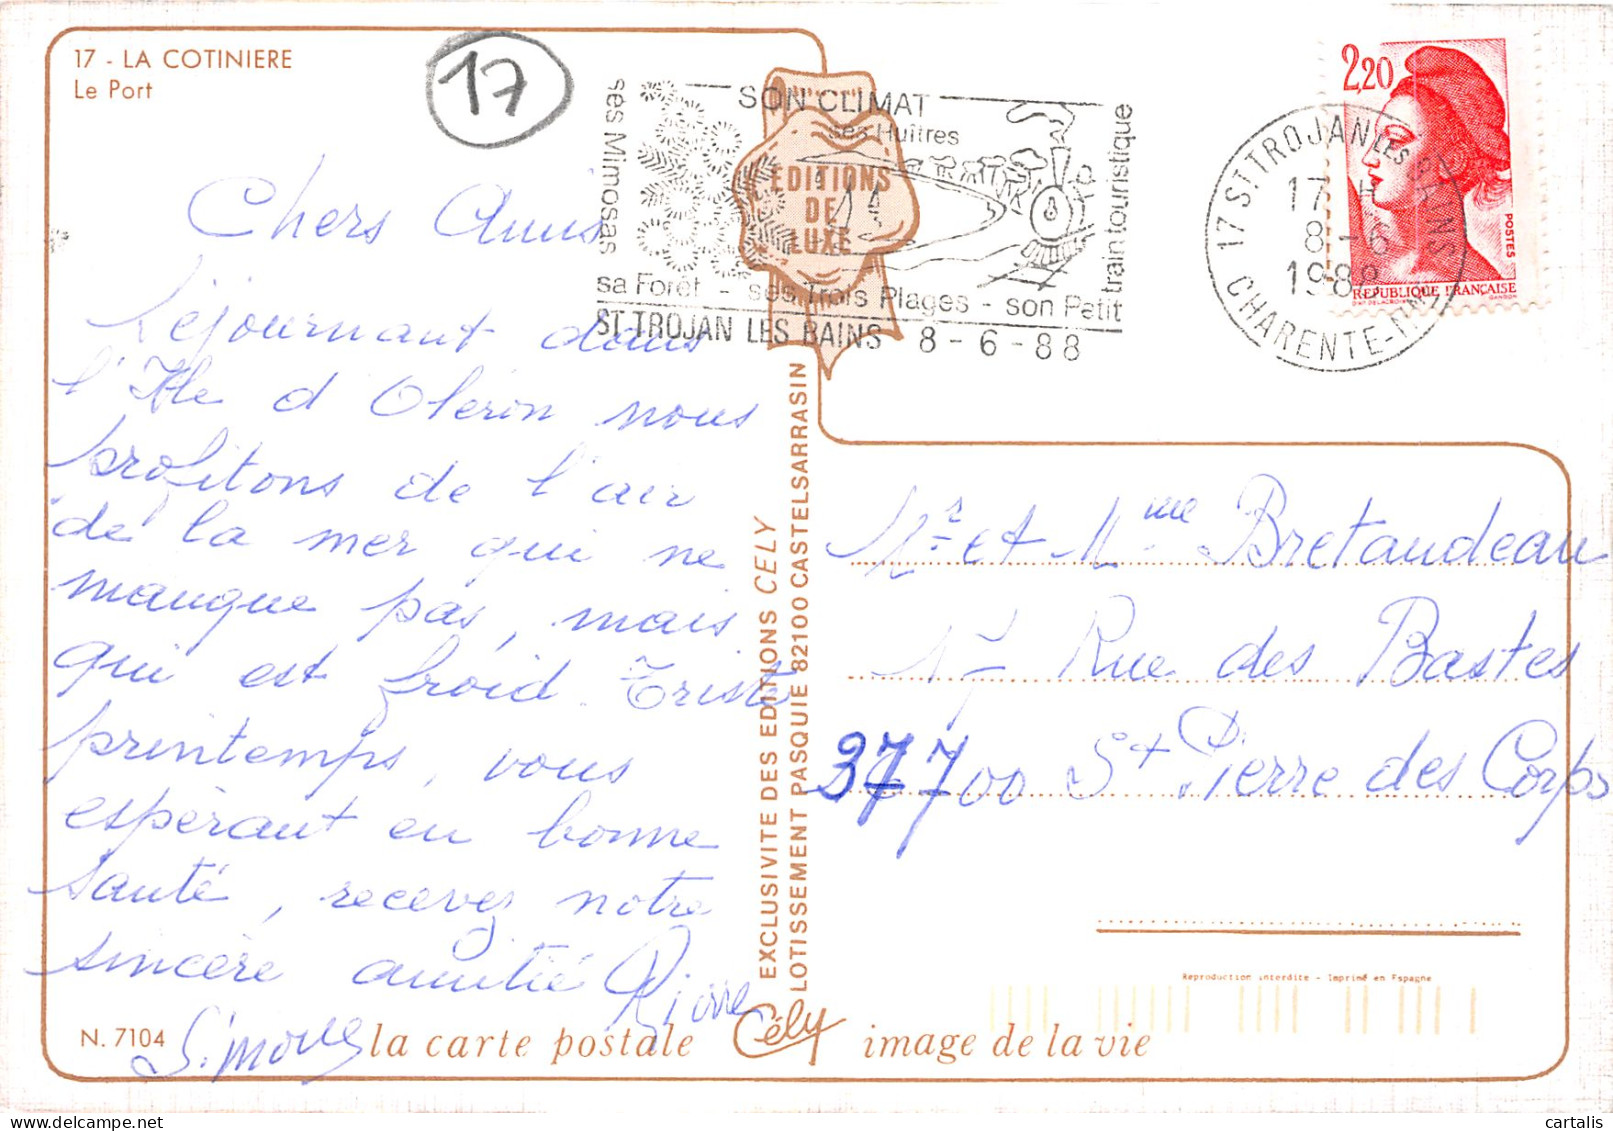 17 - LA COTINIERE
Le Port
17
SON CLIMAT
ses Huîtres
ses Mimosas
train touristique
sa Forêt - ses Trois Plages - son Petit
ST TROJAN LES BAINS 8 - 6 - 88
EDITIONS
DE
LUXE
2,20
POSTES
REPUBLIQUE FRANÇAISE
17 ST TROJAN LES BAINS
17 H
8 - 6
1988
CHARENTE-Mme
Chers Amis
Séjournant dans
l'Ile d'Oléron nous
profitons de l'air
de la mer qui ne
manque pas, mais
qui est froid. Triste
printemps, vous
espérant en bonne
santé, recevez notre
sincère amitié Pierre
Simone
EXCLUSIVITE DES EDITIONS CELY
LOTISSEMENT PASQUIE 82100 CASTELSARRASIN
Mr et Mme Bretaudeau
17 Rue des Bastes
37700 St Pierre des Corps
Reproduction interdite - Imprimé en Espagne
N. 7104
la carte postale Cély image de la vie
cartalis